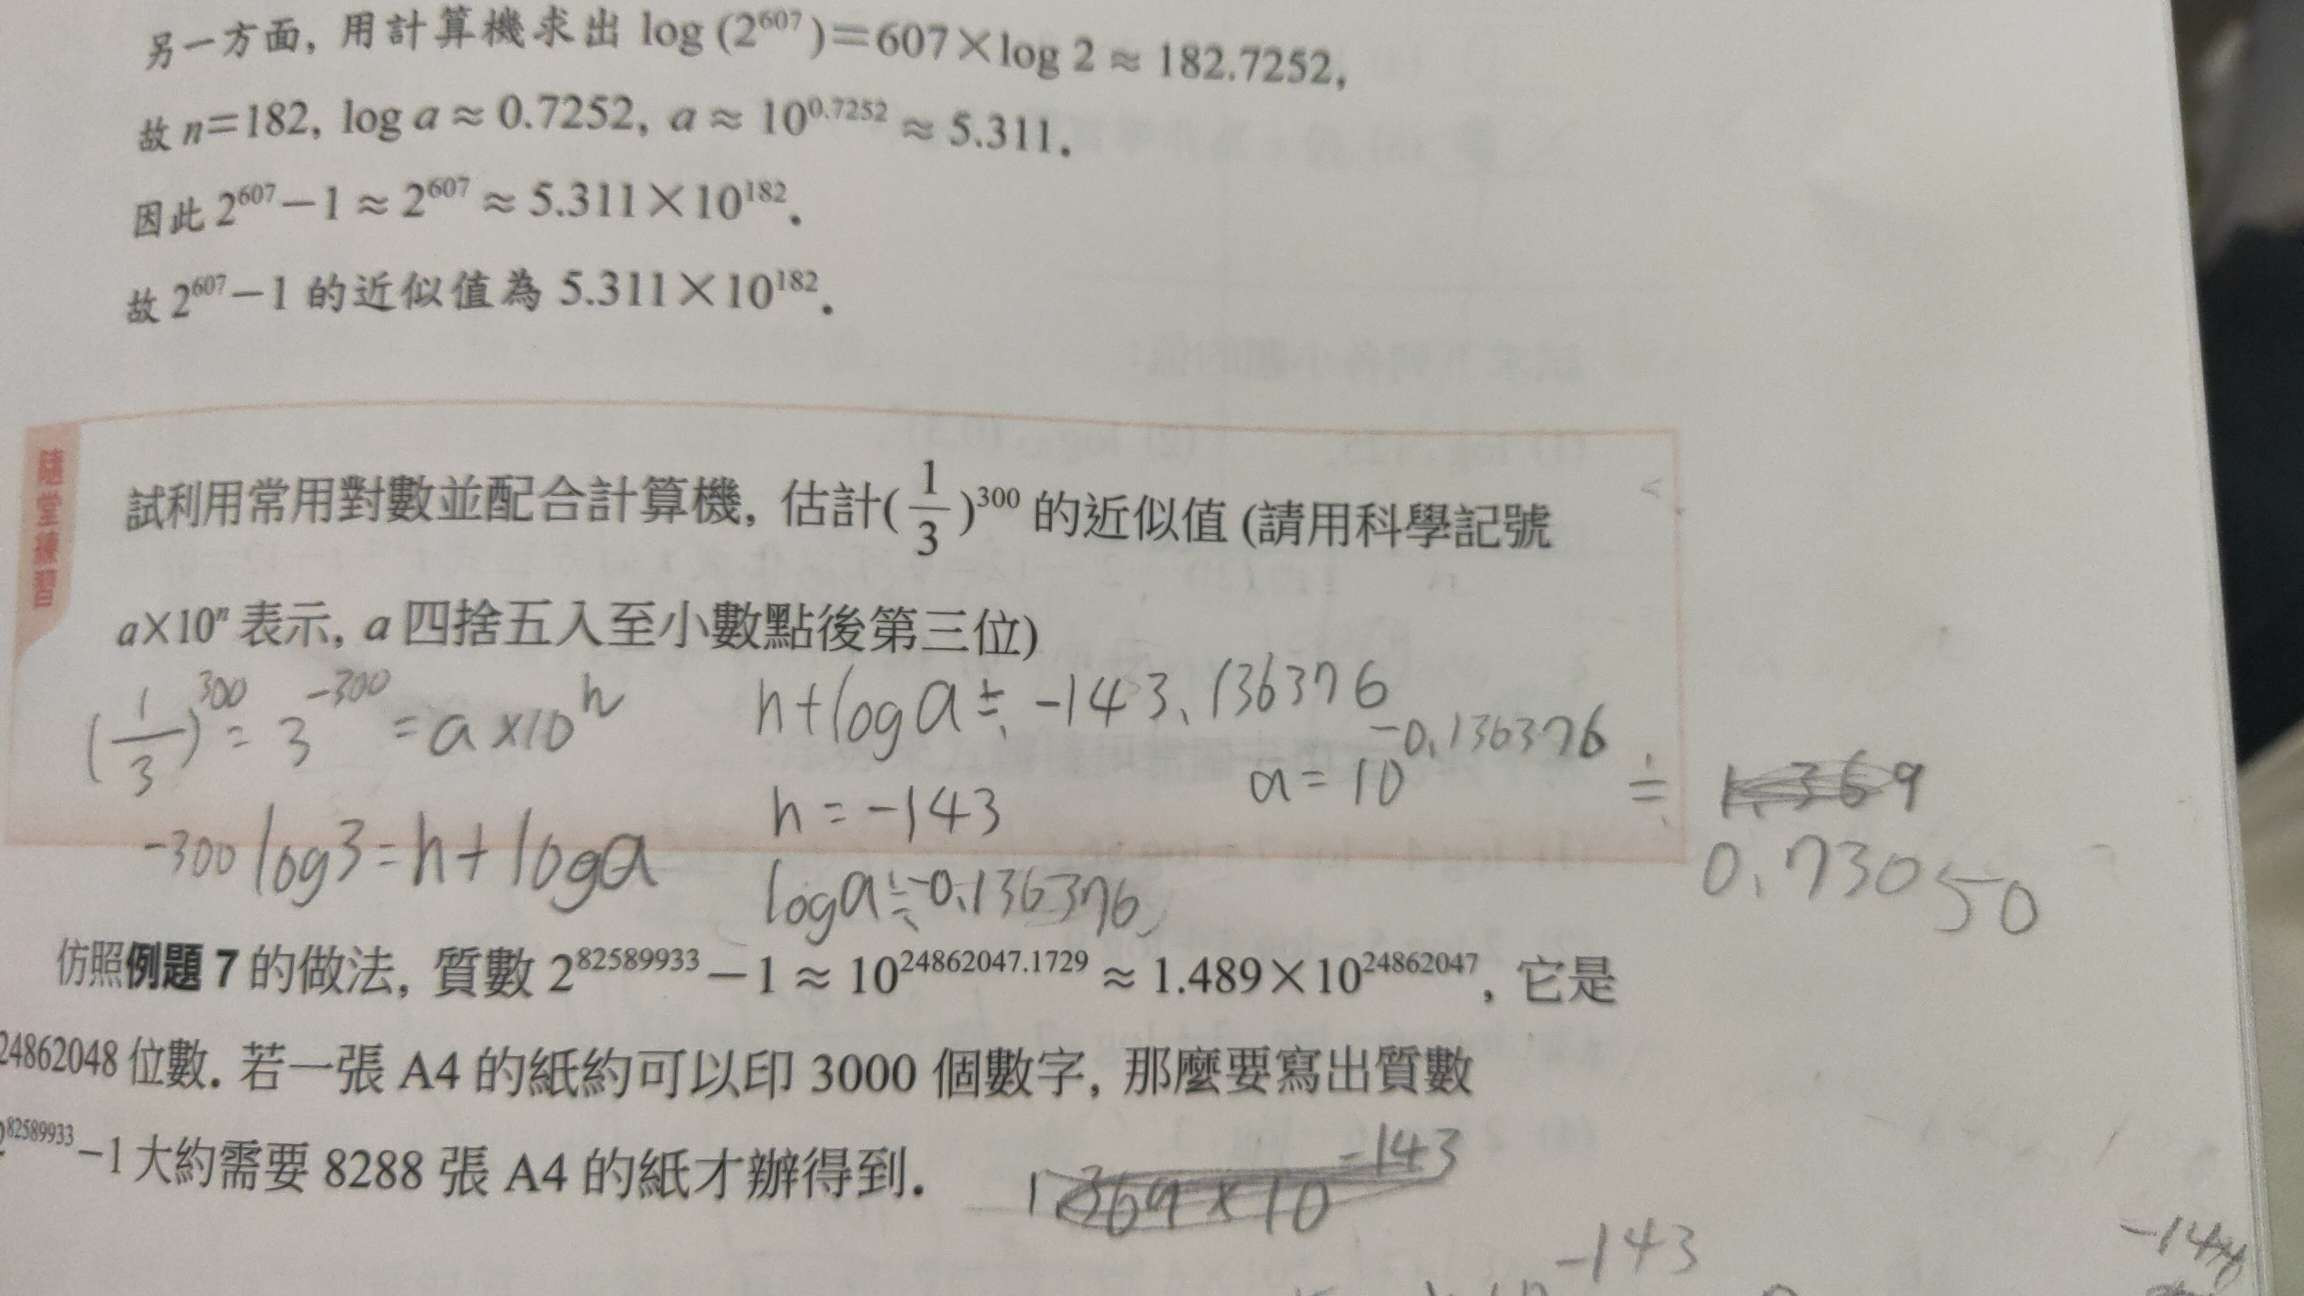 另一方面, 用計算機求出 log (2⁶⁰⁷)=607×log 2≈182.7252,
故 n=182, log a≈0.7252, a≈10^0.7252≈5.311.
因此 2⁶⁰⁷−1≈2⁶⁰⁷≈5.311×10¹⁸².
故 2⁶⁰⁷−1 的近似值為 5.311×10¹⁸².
隨堂練習
試利用常用對數並配合計算機, 估計(1/3)³⁰⁰ 的近似值 (請用科學記號
a×10ⁿ 表示, a 四捨五入至小數點後第三位)
(1/3)³⁰⁰ = 3⁻³⁰⁰ = a×10ⁿ
-300 log3 = n + log a
n + log a ≒ -143.136376
n = -143
log a ≒ -0.136376
a = 10^-0.136376 ≒
0.73050
仿照例題 7 的做法, 質數 2⁸²⁵⁸⁹⁹³³−1≈10^24862047.1729≈1.489×10²⁴⁸⁶²⁰⁴⁷, 它是
24862048 位數. 若一張 A4 的紙約可以印 3000 個數字, 那麼要寫出質數
2⁸²⁵⁸⁹⁹³³−1 大約需要 8288 張 A4 的紙才辦得到.
1.369×10⁻¹⁴³
-143